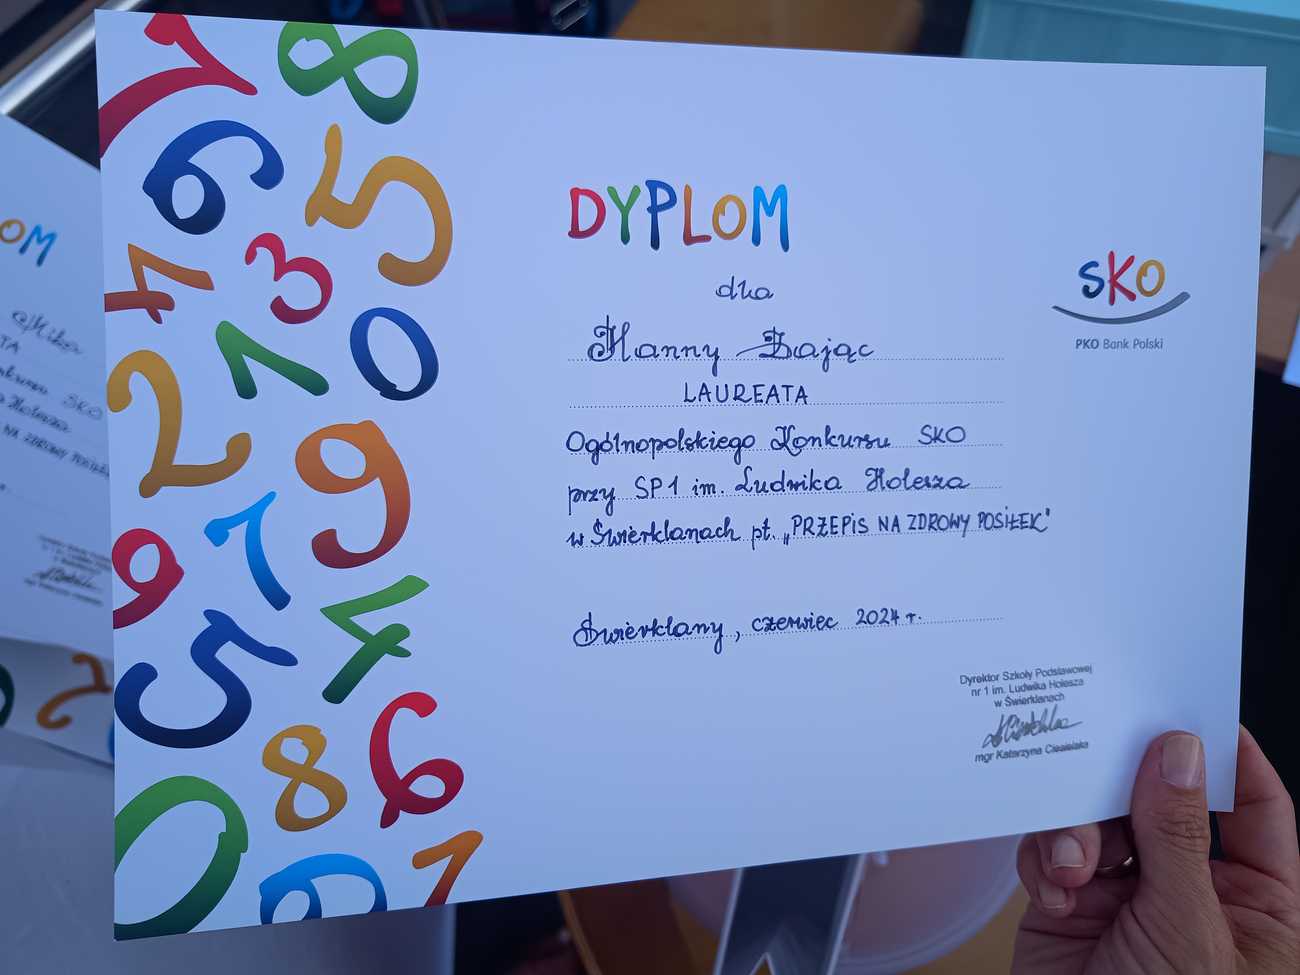 DYPLOM
dla
Hanny Zając
LAUREATA
Ogólnopolskiego Konkursu SKO
przy SP1 im. Ludwika Holesza
w Świerklanach pt. „PRZEPIS NA ZDROWY POSIŁEK"
Świerklany, czerwiec 2024 r.
SKO
PKO Bank Polski
Dyrektor Szkoły Podstawowej
nr 1 im. Ludwika Holesza
w Świerklanach
mgr Katarzyna
OM
Mika
TA
SKO
Holesza
NA ZDROWY POSIŁEK